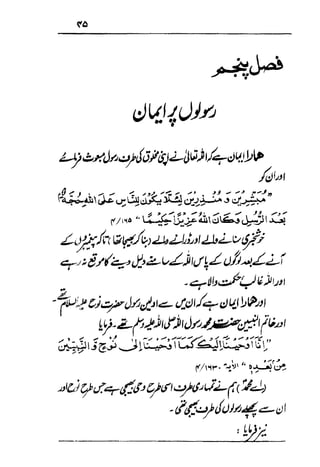 ۴۵
فصل پنجم
رسولوں پر ایمان
ھمارا ایمان ہے کہ اللہ تعالیٰ نے اپنی مخلوق کی طرف رسول مبعوث فرمائے
اور ان کو
"مُبَشِّرِيْنَ وَ مُنْذِرِيْنَ لِئَلَّا يَكُوْنَ لِلنَّاسِ عَلَى اللّٰهِ حُجَّةٌ
بَعْدَ الرُّسُلِ وَكَانَ اللّٰهُ عَزِيْزًا حَكِيْمًا" ۴/۱۶۵
خوشخبری سنانے والے اور ڈرانے والے (بنا کر بھیجا تھا) تاکہ پیغمبروں کے
آنے کے بعد لوگوں کے پاس اللہ کے سامنے دلیل دینے کا موقع نہ رہے
اور اللہ غالب حکمت والا ہے۔
اور ھمارا ایمان ہے کہ ان میں سے اولین رسول حضرت نوح علیہ السلام تھے۔
اور خاتم النبیین حضرت محمد رسول اللہ صلی اللہ علیہ وسلم تھے۔ فرمایا
"اِنَّآ اَوْحَيْنَآ اِلَيْكَ كَمَآ اَوْحَيْنَآ اِلٰى نُوْحٍ وَّ النَّبِيّٖنَ
مِنْ بَعْدِهٖ" الآیۃ۔ ۴/۱۶۳
(اے محمدؐ) ہم نے تمہاری طرف اسی طرح وحی بھیجی ہے جس طرح نوح اور
ان سے پچھلے رسولوں کی طرف بھیجی تھی۔
نیز فرمایا :